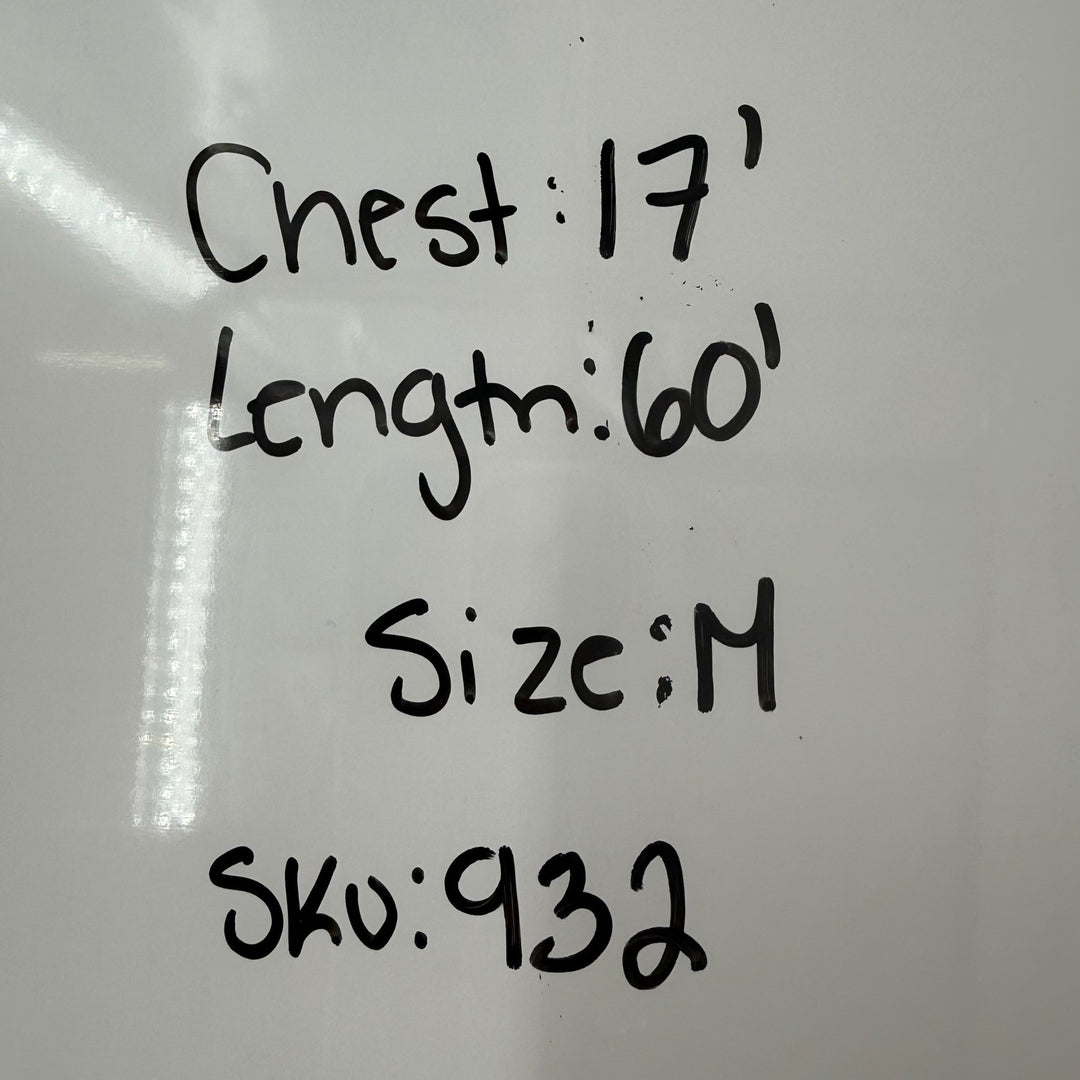 Chest: 17'
Length: 60'
Size: M
SKU: 932